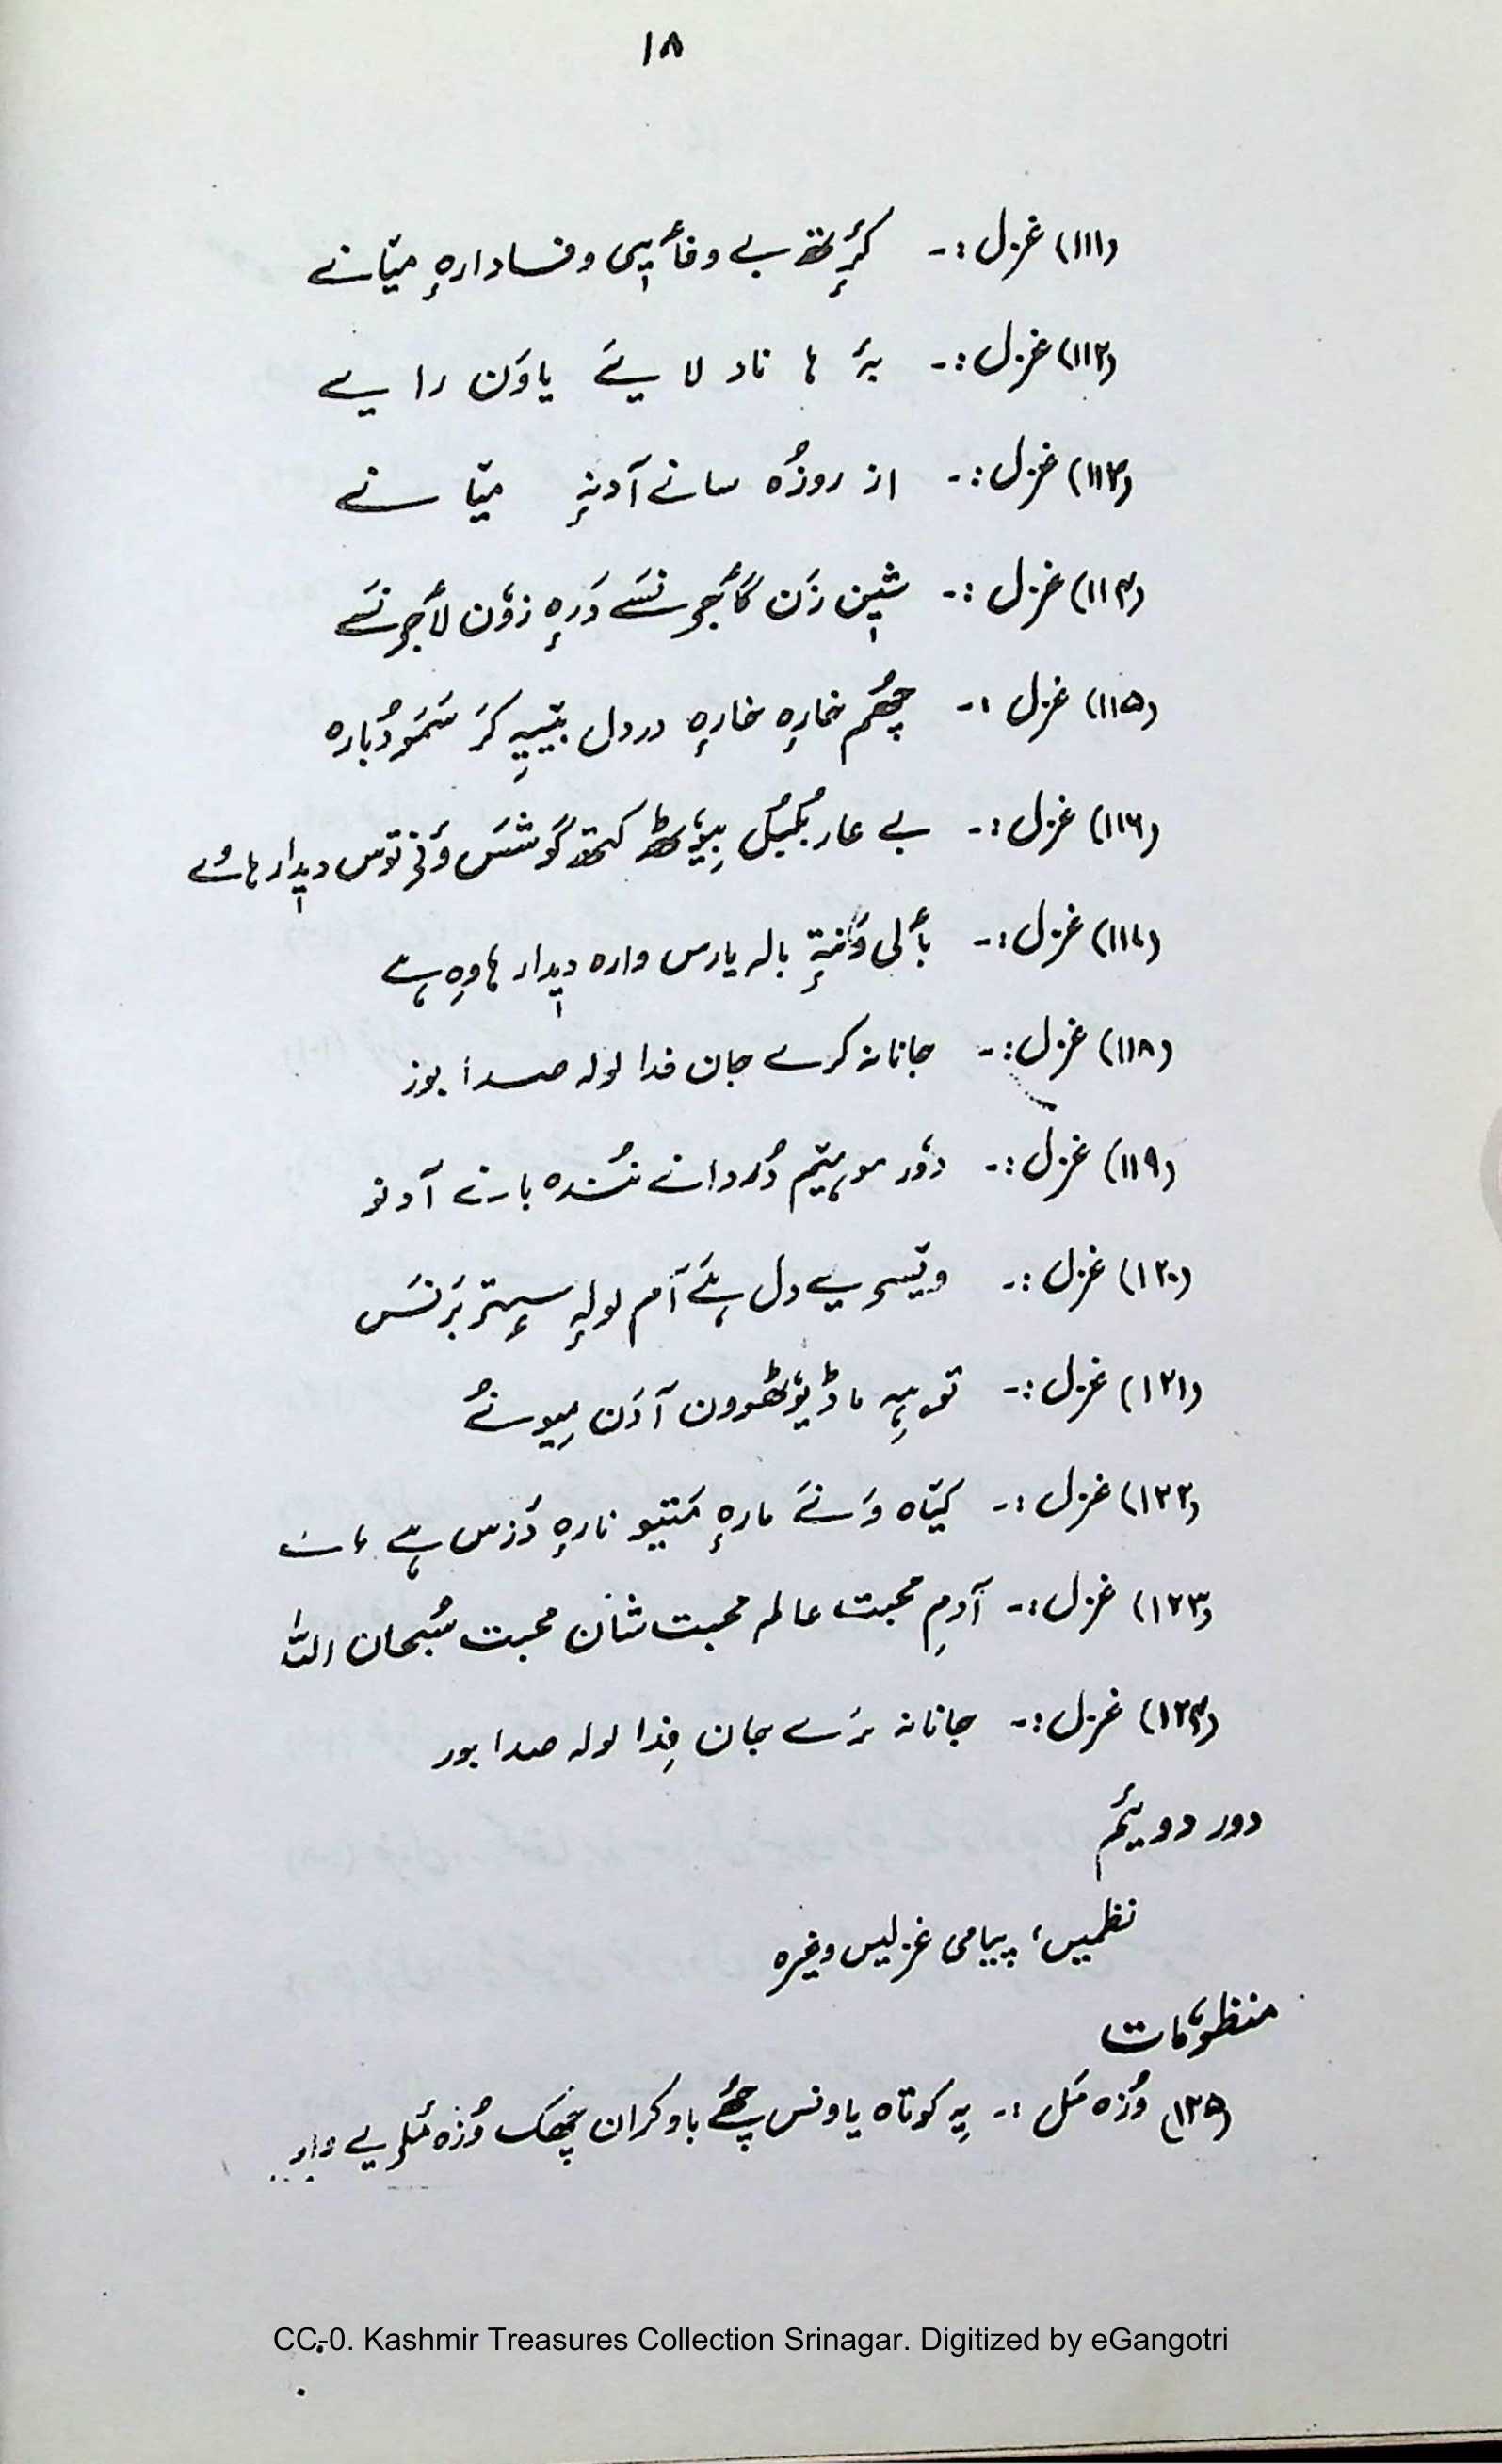 ۱۸
(۱۱۱) غزل :۔ کٔرِتھ بے وفأیی وفادارٕہ میٛانے
(۱۱۲) غزل :۔ بہٕ ہا ناد لا یَے یاوَن را یے
(۱۱۳) غزل :۔ از روزُہ سانے آدنہٕ میٛا نے
(۱۱۴) غزل :۔ شیٖن زَن گأجرنسَے دَرٕہ زوٗن لأجرنسَے
(۱۱۵) غزل :۔ چھُم خارٕہ خارٕہ دردل بیٚیہِ کَر سَمَو دُبارہ
(۱۱۶) غزل :۔ بے عار بُمبُل بیوٗٹھ کتھ گوشَس ؤنۍ توس دیٖدار ہاوُے
(۱۱۷) غزل :۔ بألی وَنتہٕ بالہ یارس وارہ دیٖدار ہاوِہ ہے
(۱۱۸) غزل :۔ جانانہ کرے جان فدا لولہ صدا بوز
(۱۱۹) غزل :۔ دوٗر موہیٚم دُردانے نُندہ بانے آدنو
(۱۲۰) غزل :۔ ویٚسۍ یے دل ہَے آم لولہٕ سٟتۍ بَرنَس
(۱۲۱) غزل :۔ توہہِ ما ڈیوٗٹھوون آدَن میونُے
(۱۲۲) غزل :۔ کیٛاہ وَنَے مارٕہ مَتیو نارٕہ دَزس ہے
(۱۲۳) غزل :۔ آدمِ محبت عالم محبت شان محبت سُبحان اللہ
(۱۲۴) غزل :۔ جانانہ کرَے جان فِدا لولہ صدا بوز
دور دوییٔم
نظمیں، پیامی غزلیں وغیرہ
منظوٗمات
(۱۲۵) وُزہ مَل :۔ یِہ کوتاہ یاونس چھُے باو کران چھَک وُزہ مٔلۍ یے
CC-0. Kashmir Treasures Collection Srinagar. Digitized by eGangotri